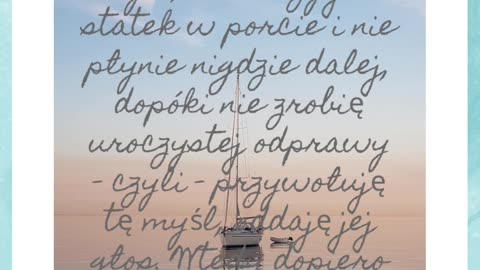 statek w porcie i nie
płynie nigdzie dalej,
dopóki nie zrobię
uroczystej odprawy
- czyli - przywołuję
tę myśl, nadaję jej
głos. Wtedy dopiero